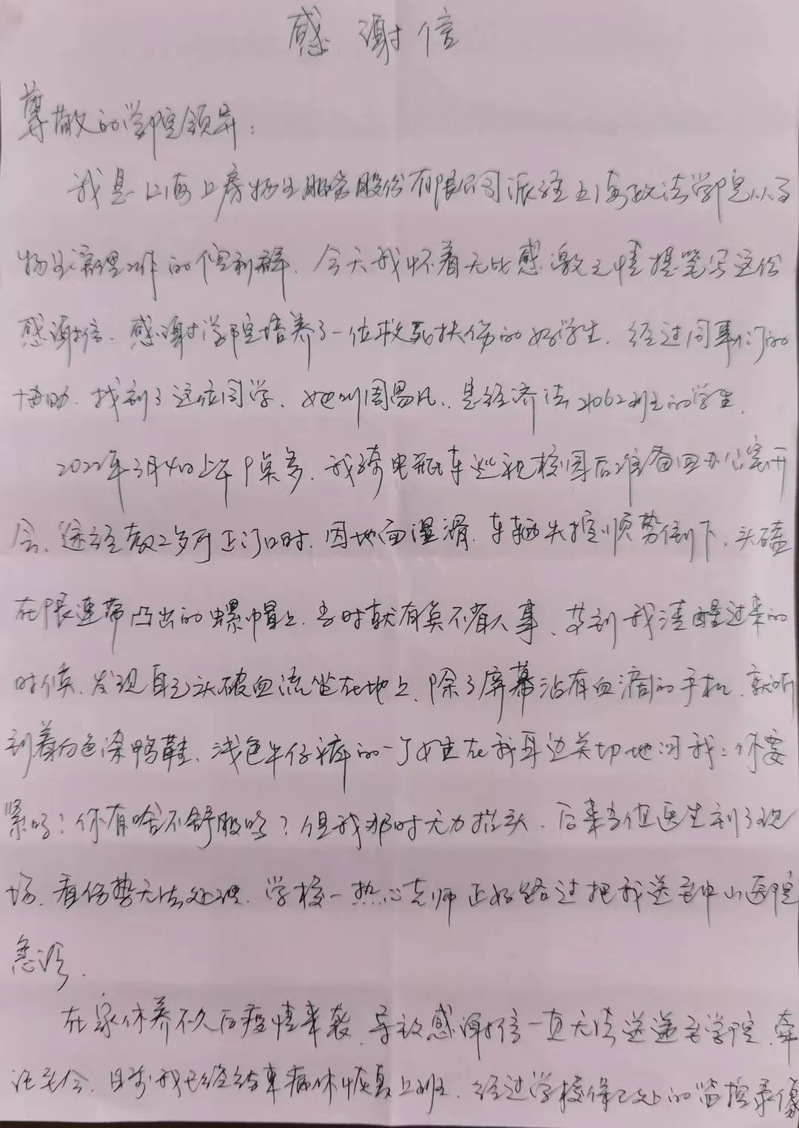 感谢信
尊敬的学院领导：
我是上海上房物业服务股份有限公司派驻上海政法学院从事
物业管理工作的倪利群。今天我怀着无比感激之情提笔写这份
感谢信。感谢学院培养了一位救死扶伤的好学生。经过同事们的
协助，找到了这位同学，她叫周易凡，是经济法2062班的学生。
2022年3月4日上午9点多，我骑电瓶车巡视校园后准备回办公室开
会，途经教2东厅正门口时，因地面湿滑，车辆失控顺势倒下，头磕
在限速带凸出的螺帽上，当时就有点不省人事，等到我清醒过来的
时候，发现自己头破血流坐在地上，除了屏幕沾有血滴的手机，就听
到着白色 鞋，浅色牛仔裤的一个女生在我耳边关切地问我：你要
紧吗？你有啥不舒服吗？但我那时无力抬头，后来当值医生到了现
场，看伤势无法处理，学校一热心老师正好路过把我送至中山医院
急诊。
在家休养不久后疫情来袭，导致感谢信一直无法送递至学院，牵
 至今，目前我已经结束病休恢复上班，经过学校保卫处的监控录像